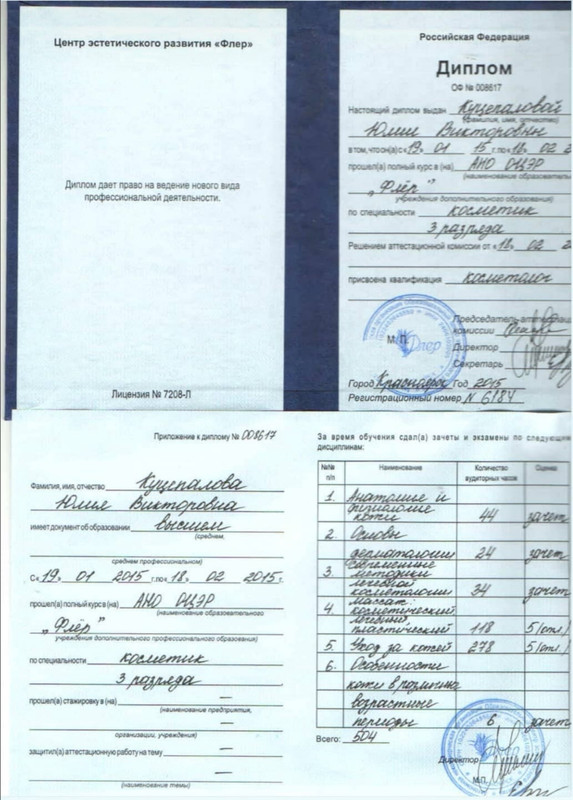 Центр эстетического развития «Флер»
Диплом дает право на ведение нового вида
профессиональной деятельности.
Лицензия № 7208-Л
Российская Федерация
Диплом
ОФ № 008617
Настоящий диплом выдан Куцепаловой
(фамилия, имя, отчество)
Юлии Викторовны
в том, что он(а) с «19» 01 15 г. по «18» 02 2
прошел(а) полный курс в (на) АНО ОЦЭР
(наименование образователь
„Флёр”
учреждения дополнительного образования)
по специальности косметик
3 разряда
Решением аттестационной комиссии от «18» 02 2
присвоена квалификация косметолог
Председатель аттестационной
комиссии
М.П.
Флер
Директор
Секретарь
Город Краснодар Год 2015
Регистрационный номер N 6184
Приложение к диплому № 008617
Фамилия, имя, отчество Куцепалова
Юлия Викторовна
имеет документ об образовании высшем
(среднем,
среднем профессиональном)
С «19» 01 2015 г. по «18» 02 2015 г.
прошел(а) полный курс в (на) АНО ОЦЭР
(наименование образовательного
„Флёр”
учреждения дополнительного профессионального образования)
по специальности косметик
3 разряда
прошел(а) стажировку в (на) —
(наименование предприятия,
—
организации, учреждения)
защитил(а) аттестационную работу на тему —
—
(наименование темы)
За время обучения сдал(а) зачеты и экзамены по следующим
дисциплинам:
№№ п/п Наименование Количество аудиторных часов Оценка
1. Анатомия и
физиология
кожи 44 зачет
2. Основы
дерматологии 24 зачет
3. Современные
методики
лечебной
косметологии 34 зачет
4. Массаж:
косметический
лечебный
пластический 118 5 (отл.)
5. Уход за кожей 278 5 (отл.)
6. Особенности
кожи в различные
возрастные
периоды 6 зачет
Всего: 504
Директор
М.П.